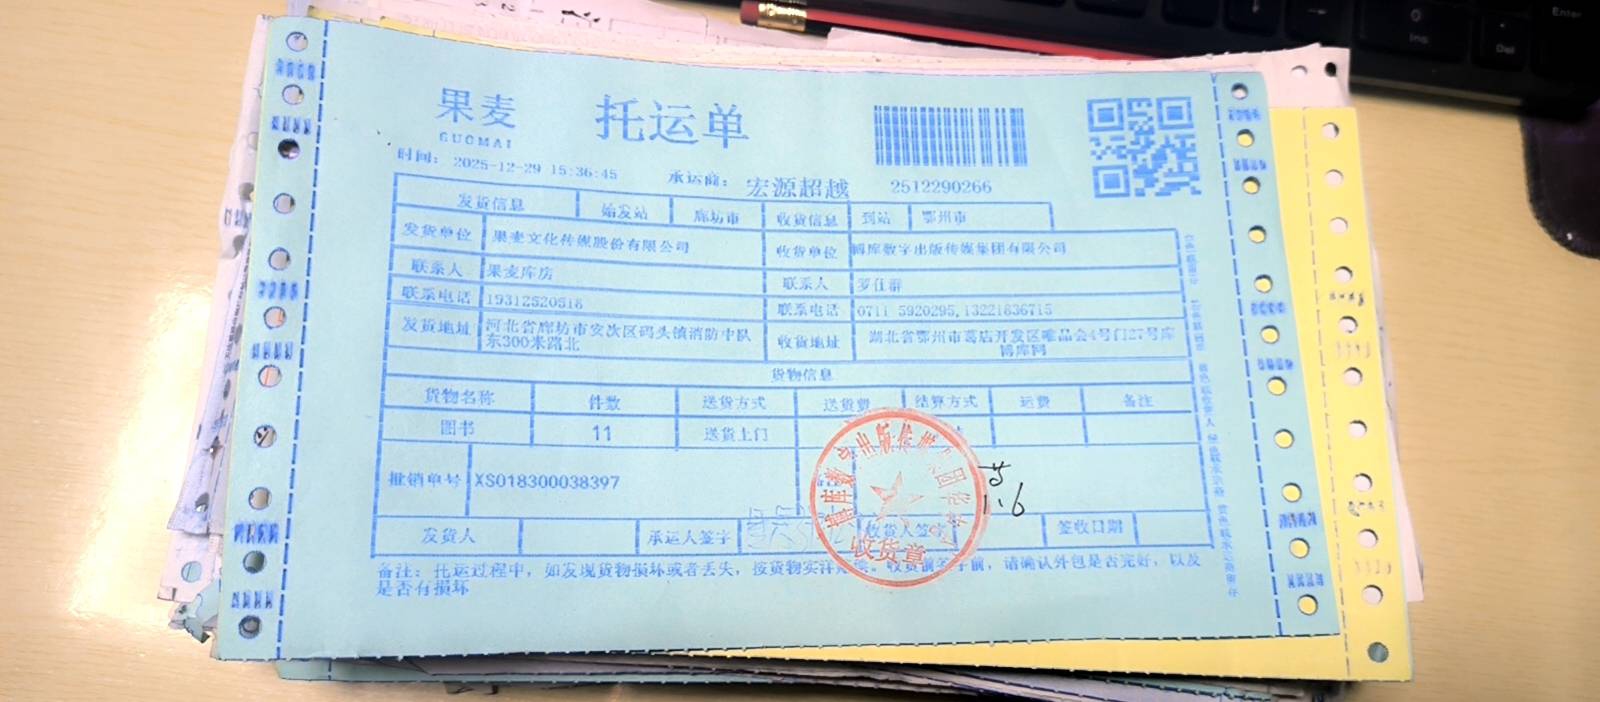 果麦 托运单
GUOMAI
时间: 2025-12-29 15:36:45 承运商: 宏源超越 2512290266
发货信息 始发站 廊坊市 收货信息 到站 鄂州市
发货单位 果麦文化传媒股份有限公司 收货单位 博库数字出版传媒集团有限公司
联系人 果麦库房 联系人 罗仕群
联系电话 19312520518 联系电话 0711 5920295,13221836715
发货地址 河北省廊坊市安次区码头镇消防中队
东300米路北
收货地址 湖北省鄂州市葛店开发区唯品会4号门27号库
博库网
货物信息
货物名称 件数 送货方式 送货费 结算方式 运费 备注
图书 11 送货上门
报销单号 XS018300038397
1.6
发货人 承运人签字 收货人签字 签收日期
收货章
备注: 托运过程中, 如发现货物损坏或者丢失, 按货物实洋 收货 前, 请确认外包是否完好, 以及
是否有损坏